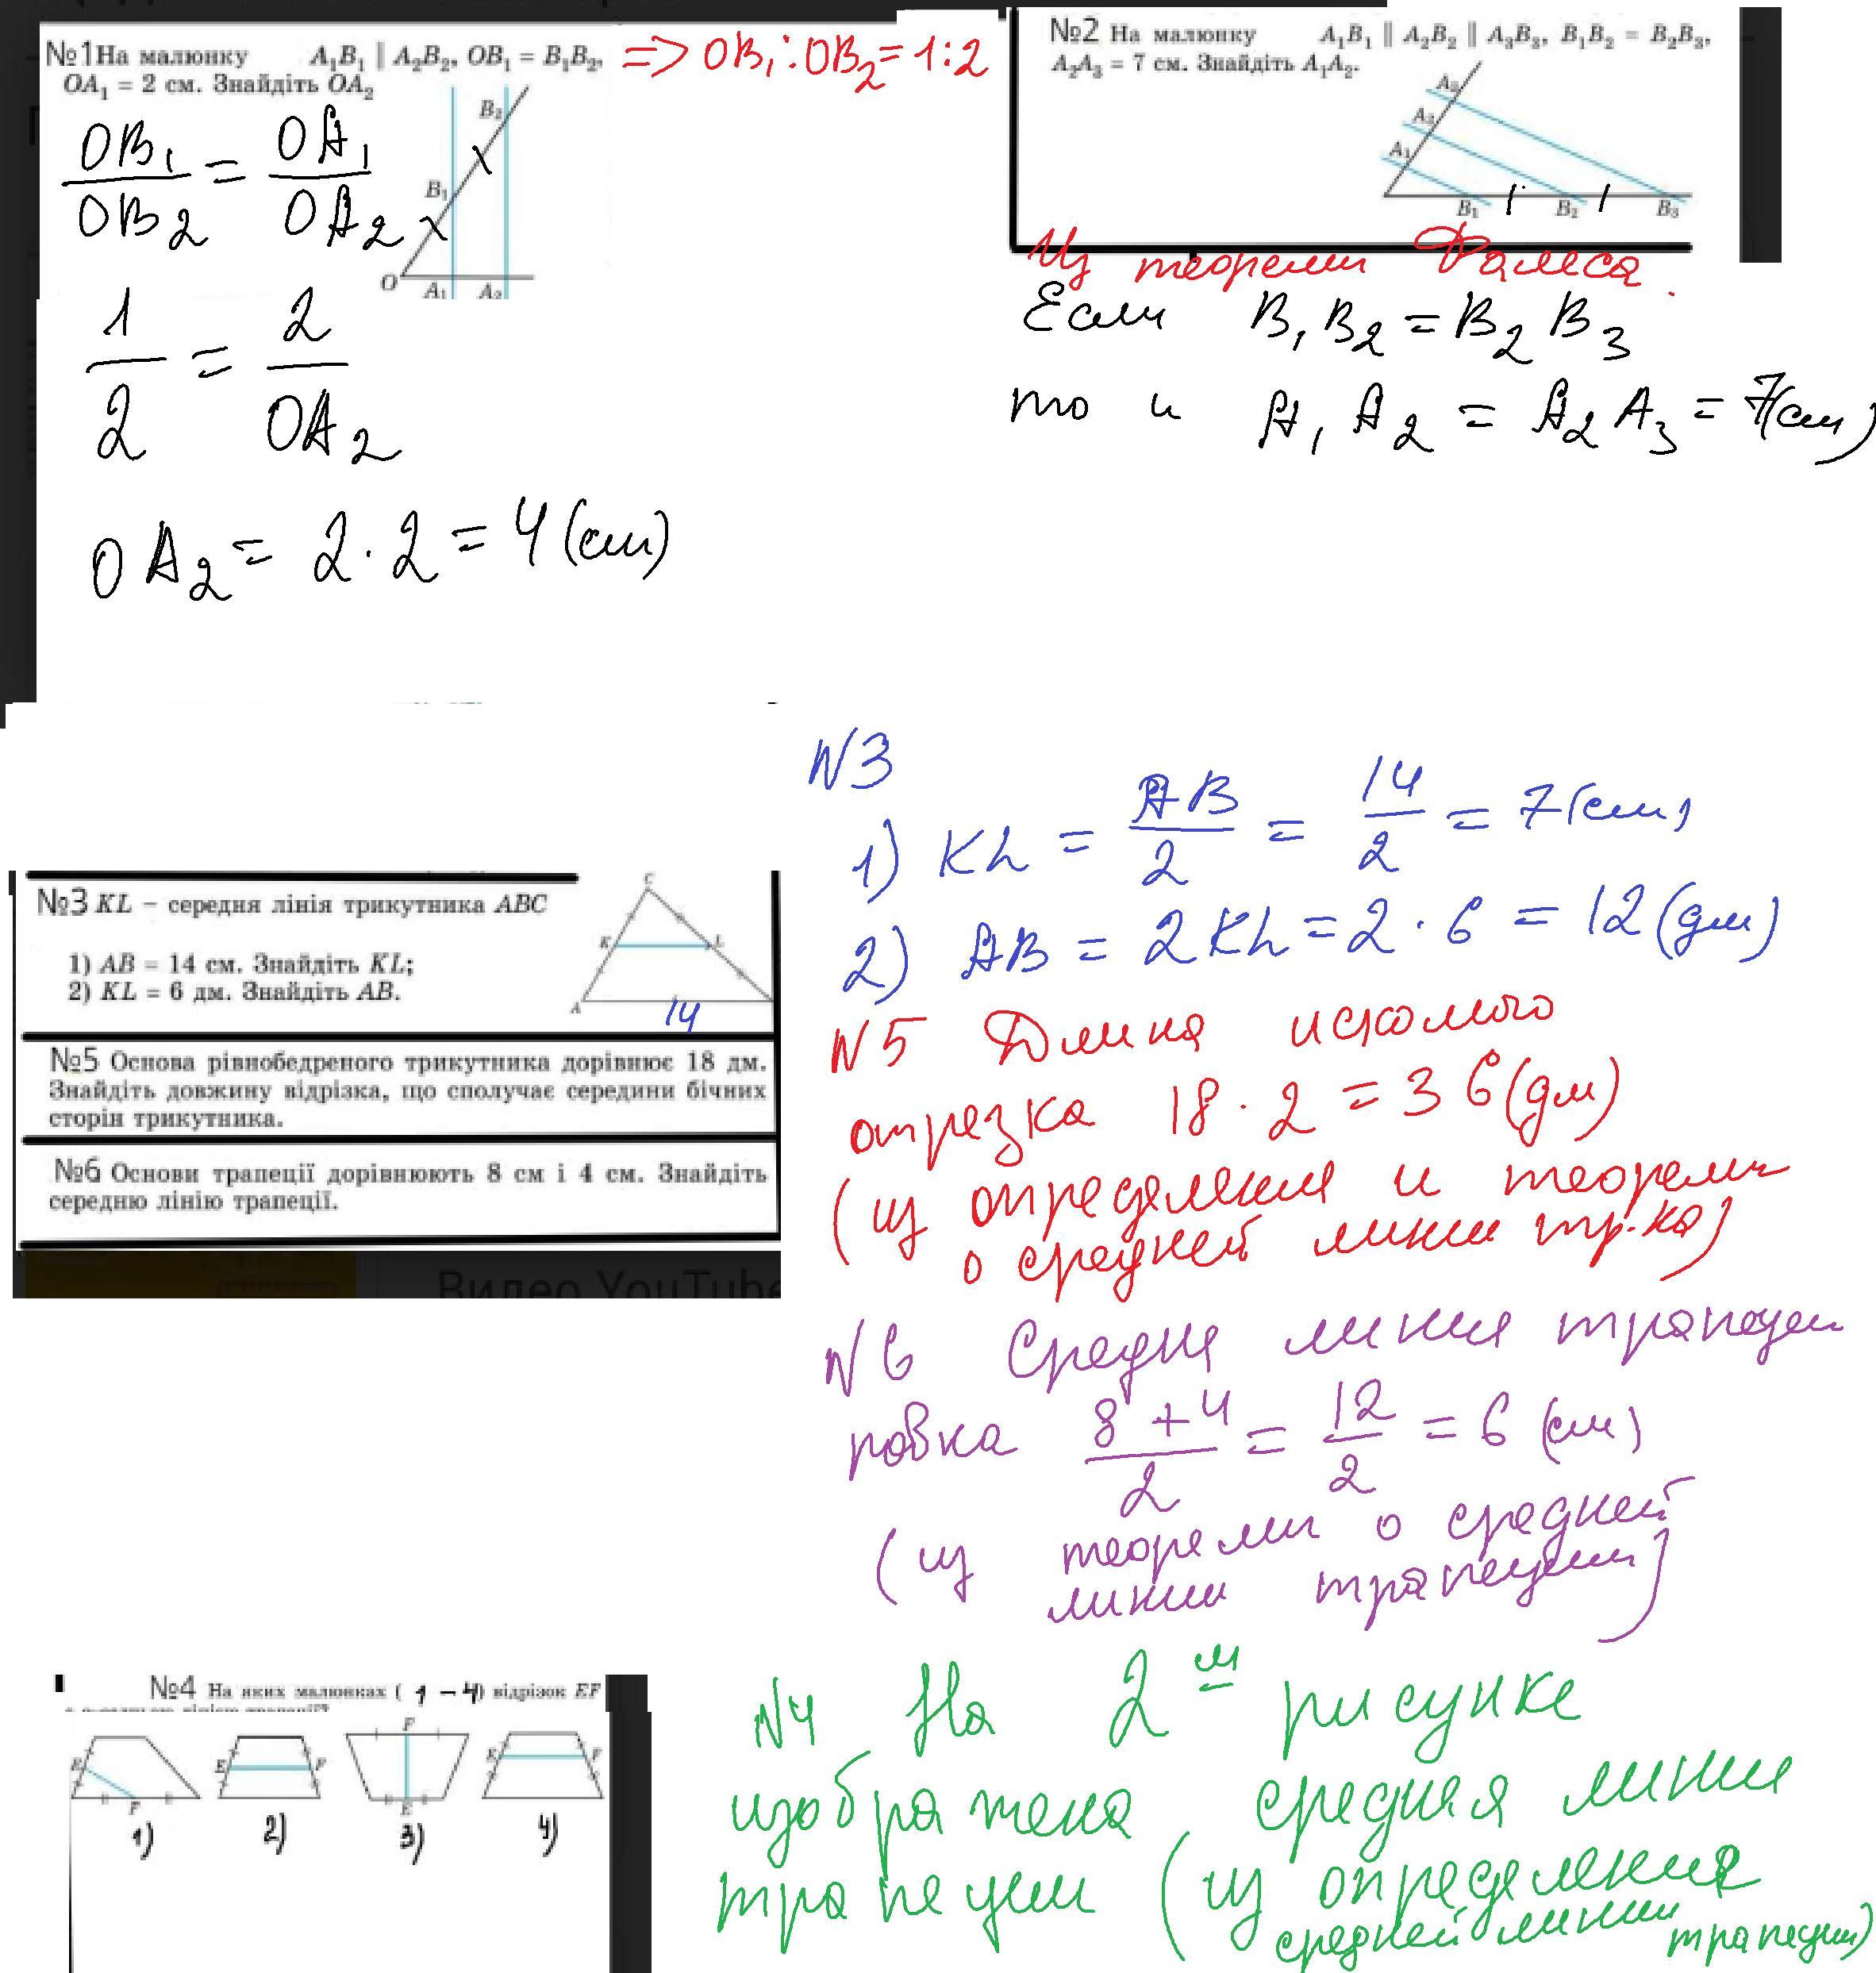 №1 На малюнку A₁B₁ ∥ A₂B₂, OB₁ = B₁B₂, => OB₁ : OB₂ = 1:2
OA₁ = 2 см. Знайдіть OA₂
OB₁/OB₂ = OA₁/OA₂
B₂
B₁
O A₁ A₂
1/2 = 2/OA₂
OA₂ = 2·2 = 4 (см)
№2 На малюнку A₁B₁ ∥ A₂B₂ ∥ A₃B₃, B₁B₂ = B₂B₃,
A₂A₃ = 7 см. Знайдіть A₁A₂.
A₃
A₂
A₁
B₁ B₂ B₃
Из теореми Фалеса.
Если B₁B₂ = B₂B₃
то и A₁A₂ = A₂A₃ = 7(см)
№3 KL – середня лінія трикутника ABC
1) AB = 14 см. Знайдіть KL;
2) KL = 6 дм. Знайдіть AB.
C
K L
A
14
№5 Основа рівнобедреного трикутника дорівнює 18 дм.
Знайдіть довжину відрізка, що сполучає середини бічних
сторін трикутника.
№6 Основи трапеції дорівнюють 8 см і 4 см. Знайдіть
середню лінію трапеції.
Видео YouTube
N3
1) KL = AB/2 = 14/2 = 7(см)
2) AB = 2KL = 2·6 = 12(дм)
N5 Длина искомого
отрезка 18·2 = 36(дм)
(из определения и теореми
о средней линии тр-ка)
N6 Средня линия трапеции
ровна (8+4)/2 = 12/2 = 6 (см)
(из теореми о средней
линии трапеции)
№4 На яких малюнках (1 – 4) відрізок EF
E F
E F
F E
E F
1) 2) 3) 4)
N4 На 2м рисунке
изображена средняя линия
трапеции (из определения
средней линии трапеции)